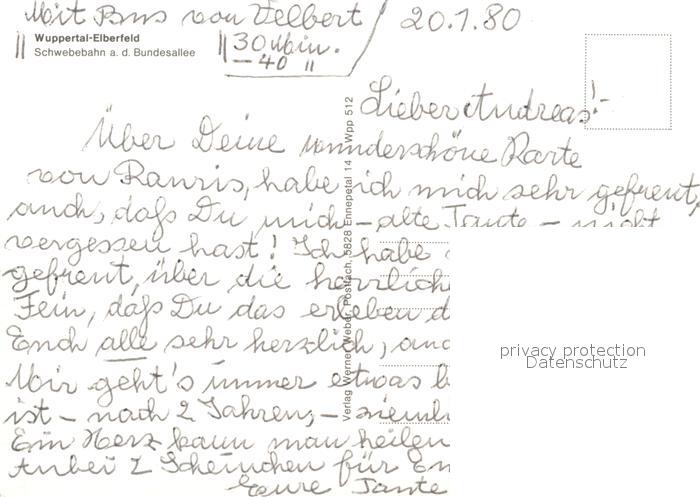 Mit Bus von Velbert / 20.1.80
Wuppertal-Elberfeld
Schwebebahn a. d. Bundesallee
30 Min.
- 40 "
Lieber Andreas!-
Über Deine wunderschöne Karte
von Rauris, habe ich mich sehr gefreut,
auch, daß Du mich - alte Tante - nicht
vergessen hast! Ich habe
gefreut, über die herrlich
Fein, daß Du das erleben d
Euch alle sehr herzlich, und
Mir geht's immer etwas b
ist - nach 2 Jahren, - zieml
Ein Herz kann man heilen
Anbei 2 Scheinchen für Eu
Eure Tante
Verlag Werner Weber, Postfach, 5828 Ennepetal 14 Wpp 512
privacy protection
Datenschutz